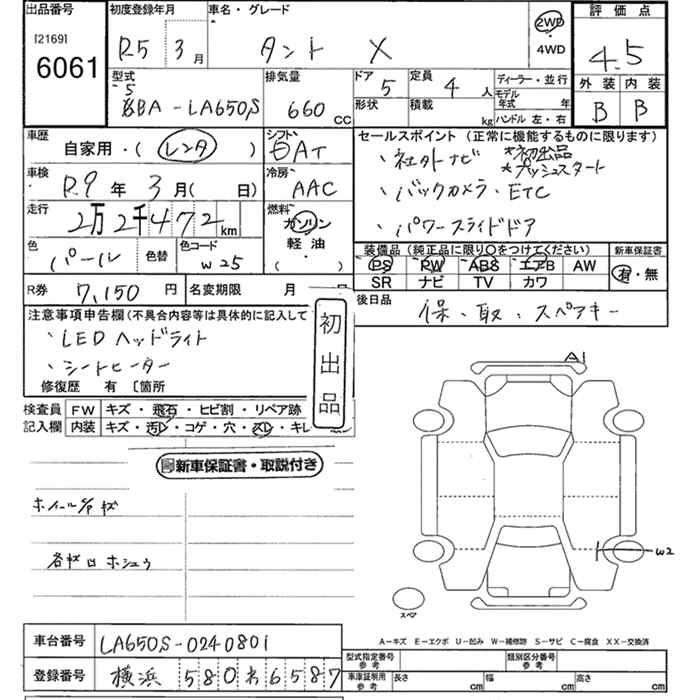 出品番号 初度登録年月 車名・グレード 2WD 評価点
[2169] 6061 R5 3月 タント X 4WD 4.5
型式 排気量 ドア 5 定員 4人 ディーラー・並行 外装 内装
5BA-LA650S 660cc 形状 積載 kg モデル年式 年 B B
ハンドル 左・右
車歴 自家用・(レンタ) シフト 6AT セールスポイント (正常に機能するものに限ります)
車検 R9年 3月( 日) 冷房 AAC ・社外ナビ *初出品
*プッシュスタート
走行 2万2千472km 燃料 ガソリン 軽油・( ) ・バックカメラ・ETC
・パワースライドドア
色 パール 色替 色コード W25 装備品 (純正品に限り○をつけてください) 新車保証書
PS PW ABS エアB AW 有・無
SR ナビ TV カワ
R券 7,150円 名変期限 月 日 後日品 保、取、スペアキー
注意事項申告欄(不具合内容等は具体的に記入して
・LEDヘッドライト
・シートヒーター
初出品
修復歴 有 〔箇所
検査員 FW キズ・飛石・ヒビ割・リペア跡
記入欄 内装 キズ・汚レ・コゲ・穴・スレ・キレ
新車保証書・取説付き
A1
ホイールキズ
各キズ ホシュウ
W2
スペア
A-キズ E-エクボ U-凹み W-補修跡 S-サビ C-腐食 XX-交換済
車台番号 LA650S-0240801 型式指定番号 参考 類別区分番号 参考
登録番号 横浜 580 わ 6587 車庫証明用 参考 長さ cm 幅 cm 高さ cm